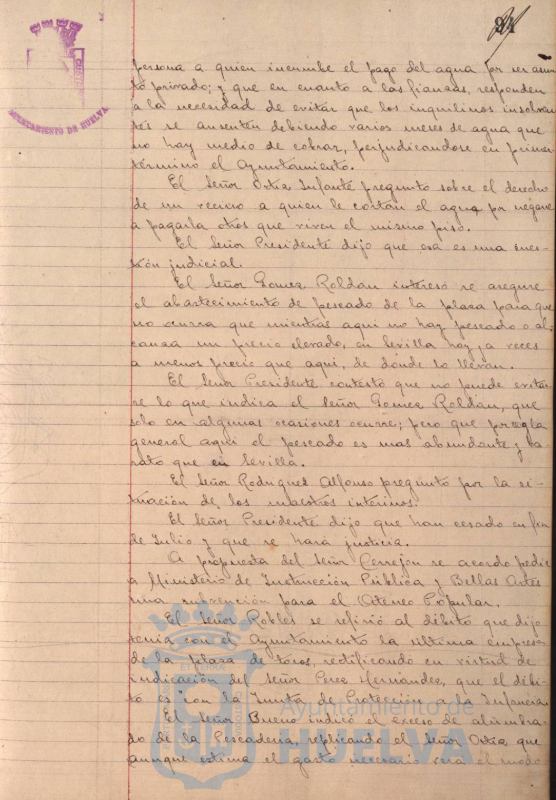 24
AYUNTAMIENTO DE HUELVA
persona a quien incumbe el pago del agua por ser asun
to privado; y que en cuanto a las fianzas, responden
a la necesidad de evitar que los inquilinos insolven
tes se ausenten debiendo varios meses de agua que
no hay medio de cobrar, perjudicandose en primer
término el Ayuntamiento.
El Señor Ostia Infante pregunto sobre el derecho
de un vecino a quien le cortan el agua por negarse
a pagarla otros que viven el mismo piso.
El Señor Presidente dijo que esa es una cues-
tión judicial.
El Señor Gomez Roldan intereso se asegure
el abastecimiento de pescado de la plaza para que
no ocurra que mientras aqui no hay pescado o al-
canza un precio elevado, en Sevilla hay a veces
a menos precio que aqui, de donde lo llevan.
El Señor Presidente contestó que no puede evitar
se lo que indica el Señor Gomez Roldan, que
solo en algunas ocasiones ocurre; pero que por regla
general aqui el pescado es mas abundante y ba
rato que en Sevilla.
El Señor Rodriguez Alfonso pregunto por la si-
tuación de los maestros interinos.
El Señor Presidente dijo que han cesado en fin
de Julio y que se hará justicia.
A propuesta del Señor Cerrejon se acordo pedir
a Ministerio de Instrucción Pública y Bellas Artes
una subvención para el Ateneo Popular.
El Señor Robles se refirió al débito que dijo
tenia con el Ayuntamiento la última empresa
de la plaza de toros, rectificando en virtud de
indicación del Señor Perez Hernández, que el débi-
to es con la Junta de Protección a la Infancia
El Señor Bueno indicó el exceso de alumbra-
do de la Pescaderia, replicando el Señor Ostia que
aunque estima el gasto necesario será el modo
Ayuntamiento de
HUELVA